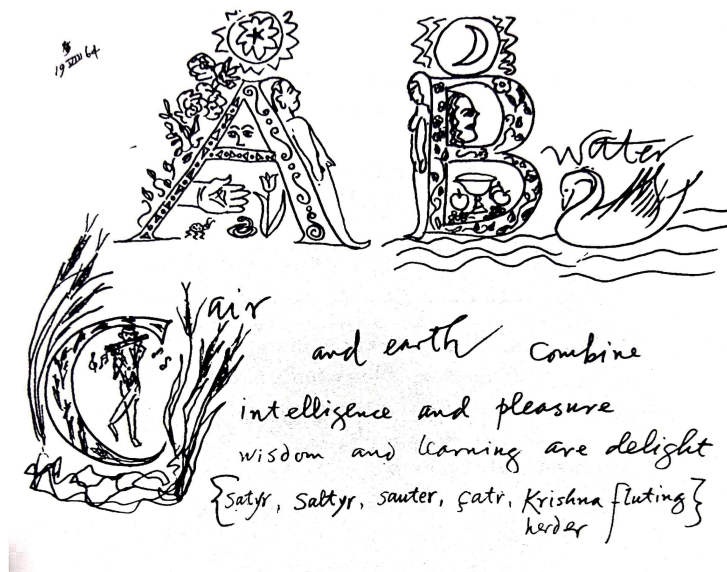 19 VIII 64
A B
water
C
air
and earth combine
intelligence and pleasure
wisdom and learning are delight
{satyr, saltyr, sauter, çatr, Krishna fluting}
herder